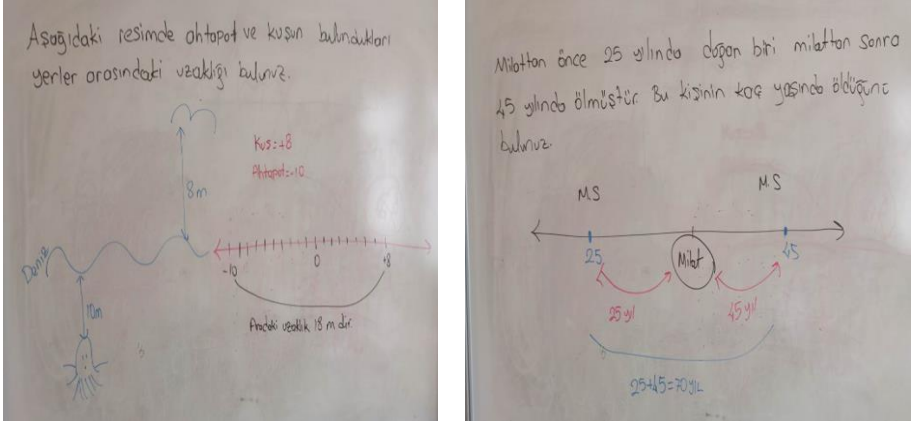 Aşağıdaki resimde ahtapot ve kuşun bulundukları
yerler arasındaki uzaklığı bulunuz.
Kuş:+8
Ahtapot:-10
8m
Deniz
-10
0
+8
10m
Aradaki uzaklık 18 m dir
Milattan önce 25 yılında doğan biri milattan sonra
45 yılında ölmüştür. Bu kişinin kaç yaşında öldüğünü
bulunuz.
M.S
M.S
25
Milat
45
25 yıl
45 yıl
25+45=70 yıl